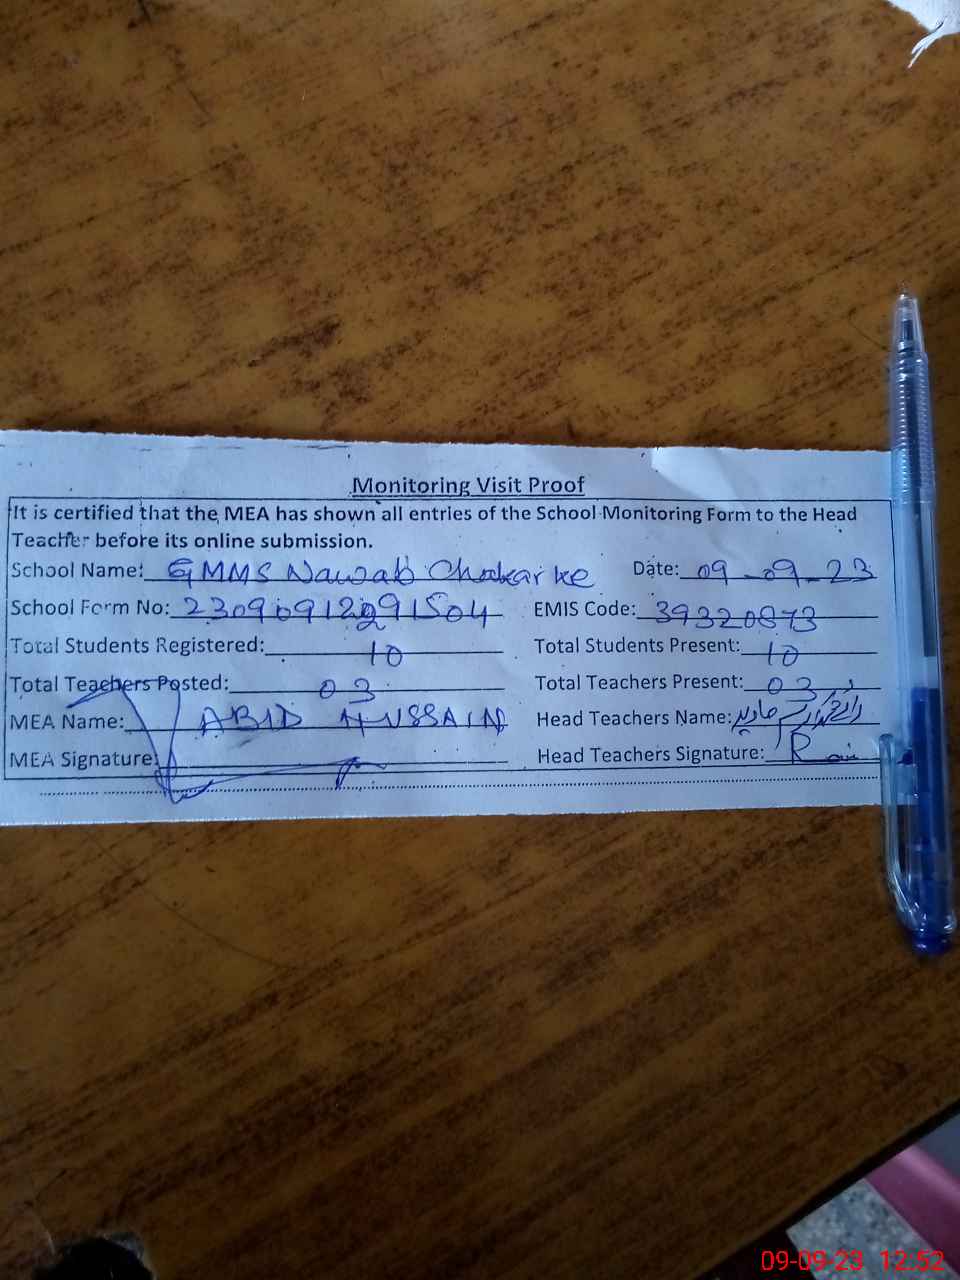 Monitoring Visit Proof
It is certified that the MEA has shown all entries of the School Monitoring Form to the Head
Teacher before its online submission.
School Name: GMMS Nawab Chakar ke Date: 09-09-23
School Form No: EMIS Code: 39320873
Total Students Registered: 10 Total Students Present: 10
Total Teachers Posted: 03 Total Teachers Present: 03
MEA Name: ABID HUSSAIN Head Teachers Name:
MEA Signature: Head Teachers Signature:
09-09-23 12:52